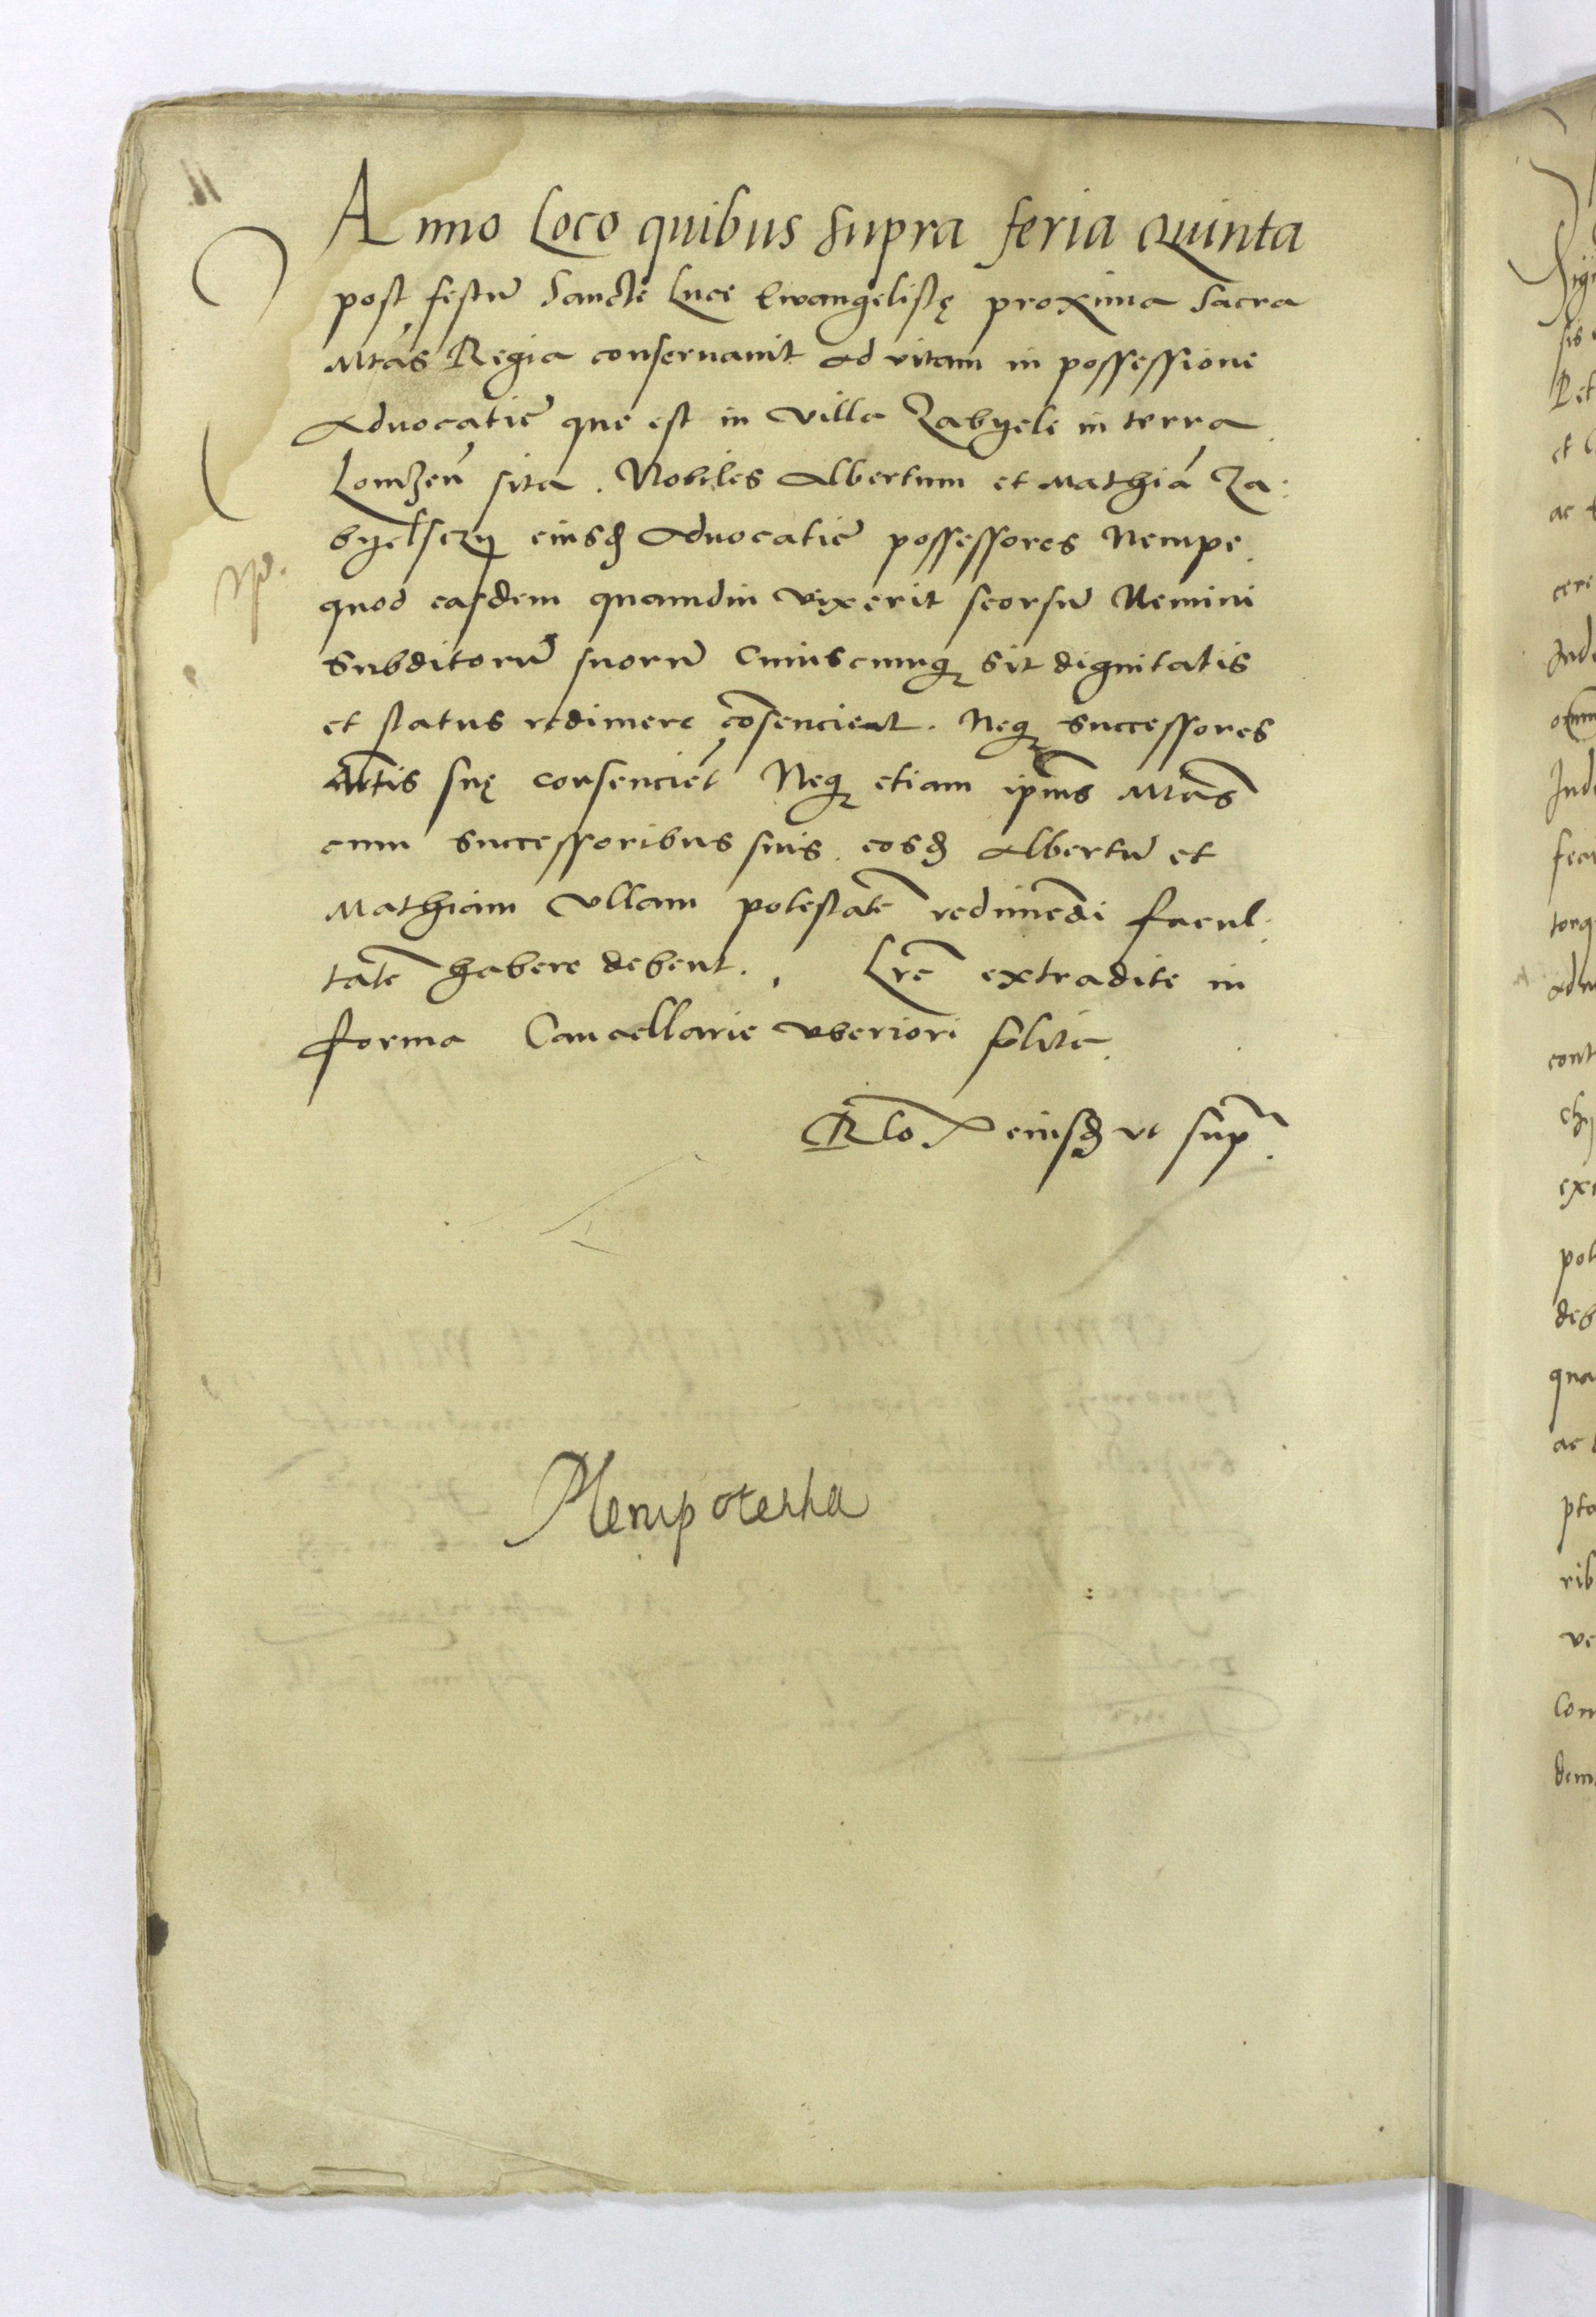 Anno Loco quibus supra feria Quinta
post festu̅ Sancte Luce Ewangelistę proxima Sacra
Mtas Regia conservavit ad vitam in possessione
Advocatie que est in villa Zabyele in terra
Lomzen̅ sita. Nobiles Albertum et Mathia̅ Za:
byelsczy eiusd Advocatie possessores Nempe
quod eosdem quamdiu vixerit seorsu̅ Nemini
Subditoru̅ suoru̅ Cuiuscumq sit dignitatis
et status redimere co̅senciet. Neq successores
Mtis suę consencie̅t Neq etiam ipius Mtas
cum successoribus suis. eosd Albertu̅ et
Mathiam Ullam potestate̅ redime̅di facul
tate̅ habere debent. Lre̅ extradite in
forma Cancellarie uberiori solite.
Rlo eiusd ut sup̅.